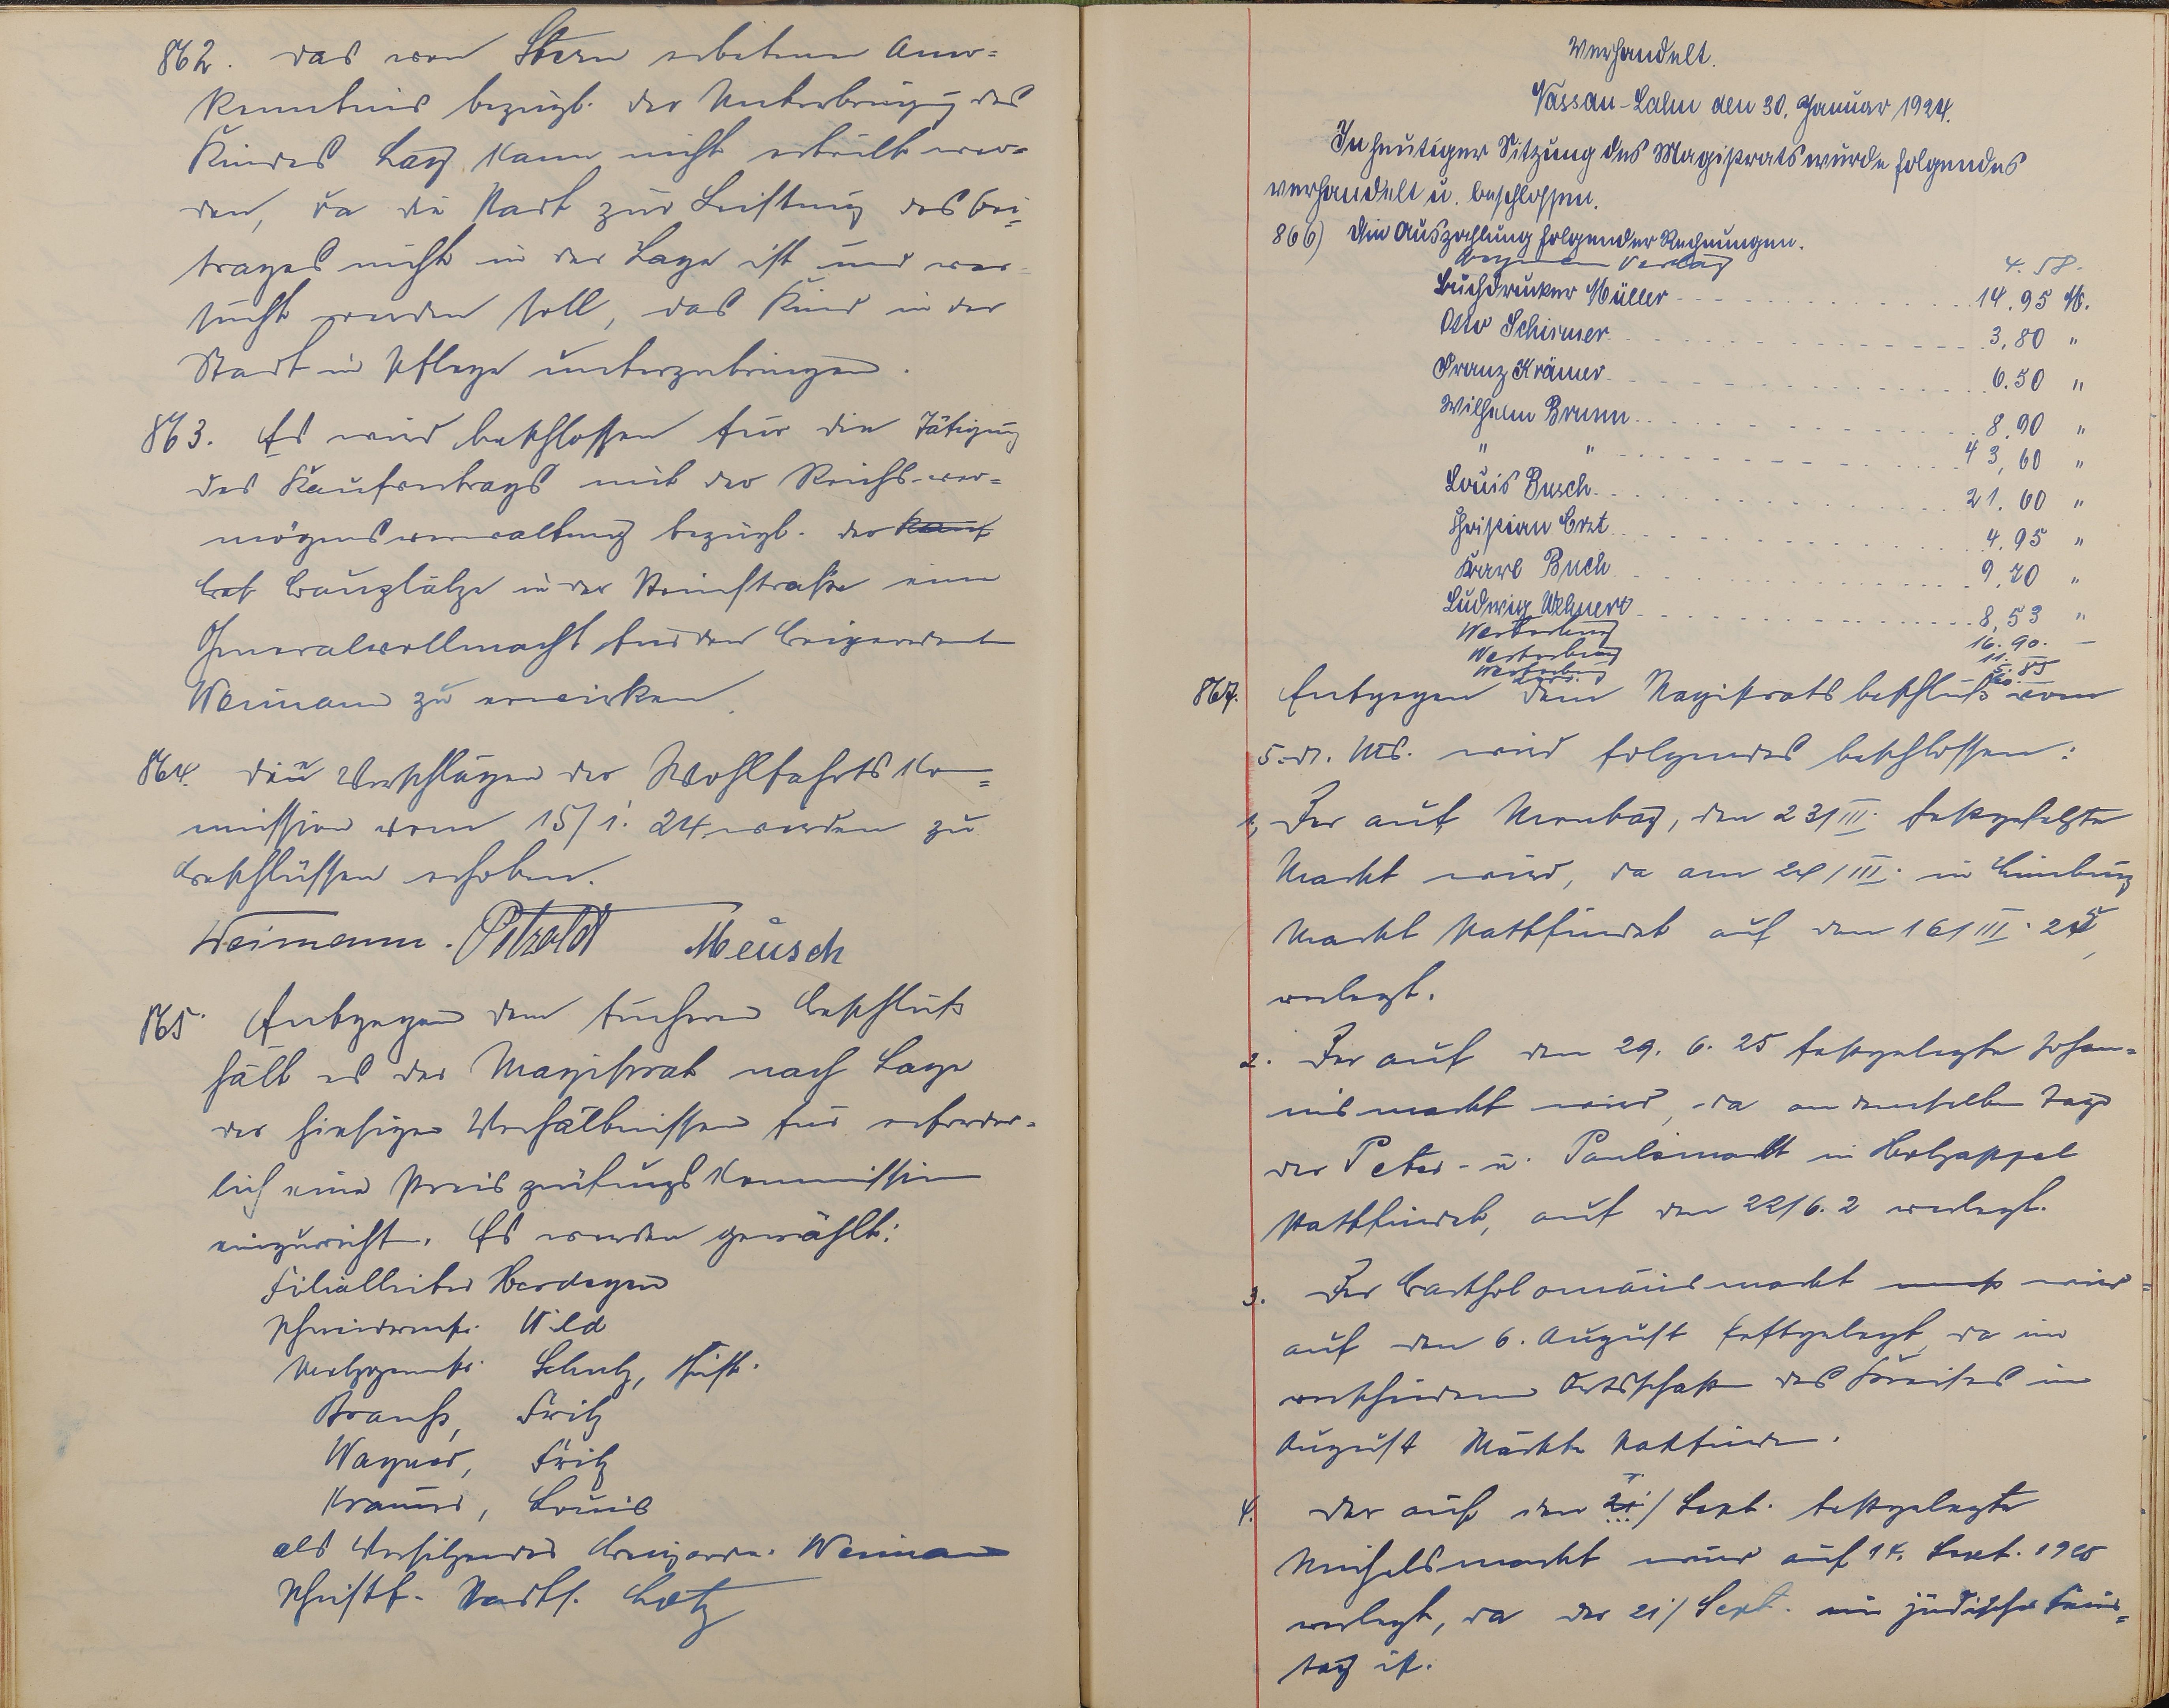 862. Das von Stern erbetene Aner=
kenntnis bezügl. der Unterbringung des
Kindes Lag kann nicht erteilt wer=
den, da die Stadt zur Leistung des Bei=
trages nicht in der Lage ist und ver=
sucht werden soll, das Kind in der
Stadt in Pflege unterzubringen.
863. Es wird beschlossen für die Tätigung
des Kaufvertrags mit der Reichsver=
mögensverwaltung bezügl. der Kauf
Bauplätze in der Steinstraße eine
Generalvollmacht für den Beigeordneten
Weimann zu erwirken.
864. Die Vorschlägen der Wohlfahrtsko=
mission vom 15/1. 24 werden zu
Beschlüssen erhoben.
Weimann. Meusch
865. Entgegen dem früheren Beschluß
hält es der Magistrat nach Lage
der hiesigen Verhältnissen für erforder=
lich eine Preisprüfungskommission
einzuricht. Es werden gewählt:
Filialleiter Herdegen
Schneidermstr. Wild
Metzgermstr. Schulz,
Strauß, Fritz
Wagner, Fritz
Kramer, Louis
als Vorsitzender Beigeordn. Weimann
Schriftf. Stadts. Lotz
Verhandelt.
Nassau-Lahn den 30. Januar 1924.
In heutiger Sitzung des Magistrats wurde folgendes
verhandelt u. beschlossen.
866) Die Auszahlung folgender Rechnungen.
Verlag 4.58.
Buchdrucker Müller 14.95 M.
Otto Schirmer 3,80 "
Franz Krämer 6.50 "
Wilhelm Bruun 8.90 "
" " 43,60 "
Louis Busch 21.60 "
Christian Erzt 4.95 "
Karl Buch 9,20 "
Ludwig Wehnert 8,53 "
Westerburg 16.90. –
Westerburg 11.
Westerburg 5.85
867. Entgegen dem Magistratsbeschluß vom
5. d. Mts. wird folgendes beschlossen:
1, Der auf Montag, den 23/III. festgesetzte
Markt wird, da am 24/III. in Limburg
Markt stattfindet auf den 16/III. 25,
verlegt.
2. Der auf den 29. 6. 25 festgelegte Johan=
nismarkt wird, da an demselben Tage
der Peter- u. Paulsmarkt in Holzappel
stattfindet, auf den 22/6. 2 verlegt.
3. Der Bartholomäusmarkt muß wird
auf den 6. August festgelegt, da in
verschiedenen Ortschaften des Kreises im
August Märkte stattfinden.
4. Der auf den 21/ Sept. festgelegte
Michelsmarkt wird auf 14. Sept. 1925
verlegt, da der 21/ Sept. ein jüdischer Feier=
tag ist.